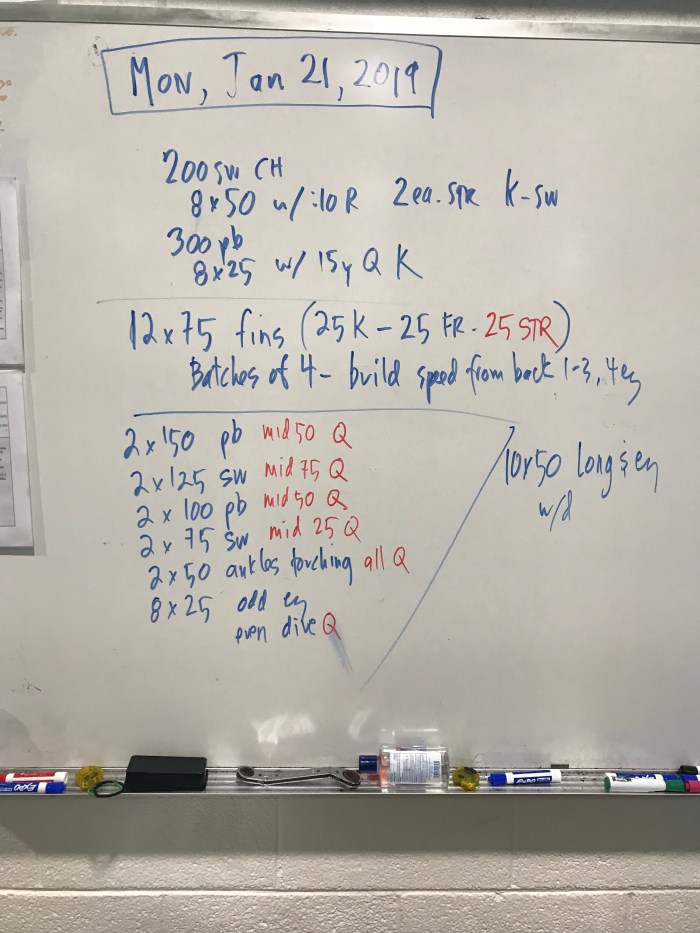 Mon, Jan 21, 2019
200 sw CH
8x50 w/ :10 R 2 ea. STR K-SW
300 pb
8x25 w/ 15y Q K
12x75 fins (25 K - 25 FR - 25 STR)
Batches of 4 - build speed from back 1-3, 4 ez
2x150 pb mid 50 Q
2x125 sw mid 75 Q
2 x 100 pb mid 50 Q
2 x 75 sw mid 25 Q
2x50 ankles touching all Q
8x25 odd ez
even dive Q
10x50 Long & ez
w/d
EXPO
EXPO